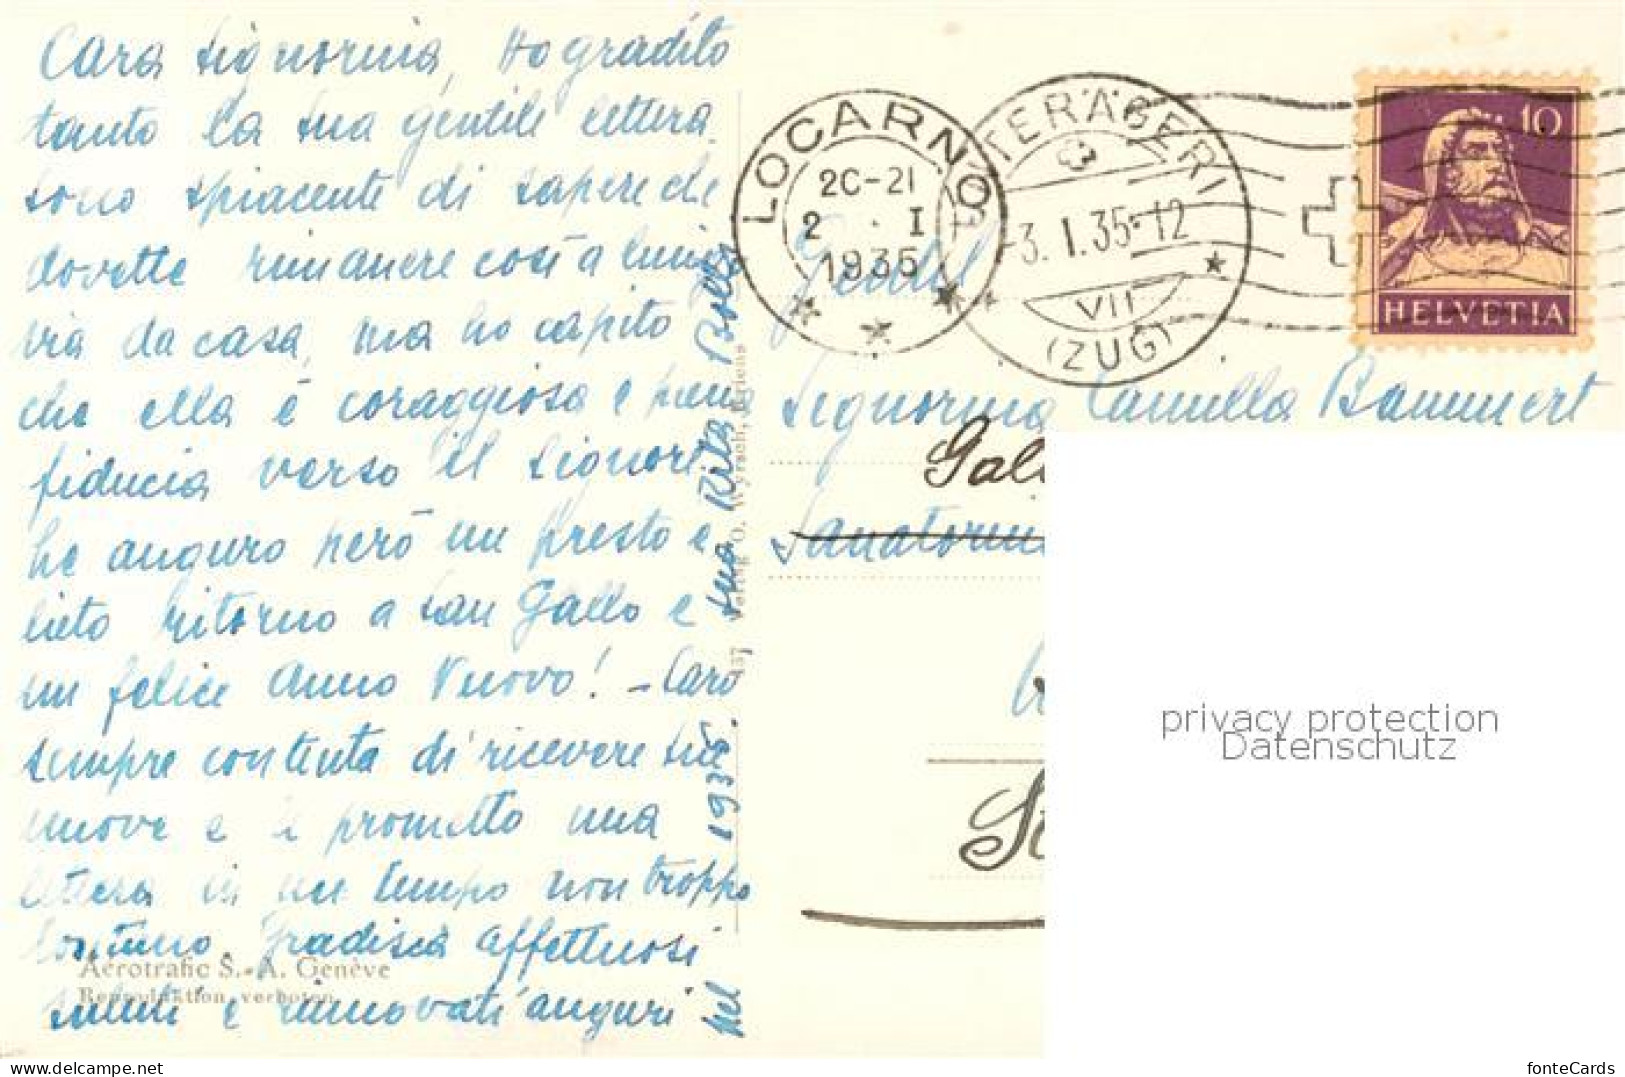 Cara Signorina, Ho gradito
tanto la sua gentile lettera.
Sono spiacente di sapere che
dovette rimanere così a lungo
via da casa, ma ho capito
che ella è coraggiosa e piena
fiducia verso il Signore.
Le auguro però un presto e
lieto ritorno a San Gallo e
un felice Anno Nuovo! - Sarò
sempre contenta di ricevere sue
nuove e le prometto una
lettera in un tempo non troppo
lontano. Gradisca affettuosi
saluti e rinnovati auguri
nel 1935. sua Rita Bolla
Aérotrafic S. A. Genève
Reproduktion verboten
457 Verlag O. Wyrsch, Kriens
LOCARNO
20-21
2 · I
1935
UNTERÄGERI
-3. I. 35-12
VII
(ZUG)
10
HELVETIA
Gentil
Signorina Camilla Bammert
Gal
Sanatorium
St
privacy protection
Datenschutz
fonteCards